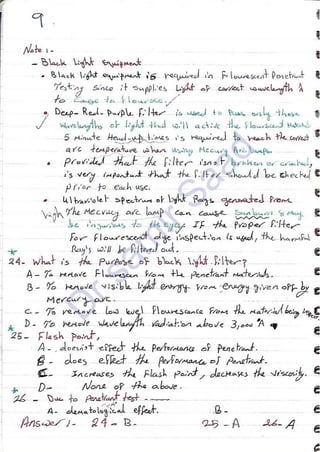 9.
Note :-
- Black Light Equipment
• Black light equipment is required in Flourescent Penetrant
Testing since it supplies Light of correct wavelength
to cause to flouresce.
• Deep-Red-Purple Filter is used to Pass only those
wavelengths of light that will activate the flourescent Materials
5 minute Head-up times is required to reach the correct
arc temperature when using Mecury Arc Lamps.
• Provided that the filter isn't broken or cracked,
is very important that the filter should be checked
prior to each use.
• Ultraviolet spectrum of light Rays generated From
The Mecury arc lamp can cause Sunburn & may
be injurious to his eyes IF the Proper Filter
For Flourescent dye inspection is used, the harmful
Ray's will be filtered out.
24- What is the Purpose of black light filter?
A- To remove Flourescen from the Penetrant materials.
B- To remove visible light energy from energy given off by
Mercury arc.
C- To remove low level Flourescence From the material being
D- To remove wavelength radiation above 3,000 A
25- Flash Point,
A- doesn't effect the Performance of Penetrant.
B- does effect the Performance of Penetrant.
C- Increases the Flash Point, decreases the viscosity.
D- None of the above.
26 - Due to Penetrant test -
A- dermatological effect. B-
Answer :- 24 - B- 25 - A 26- A